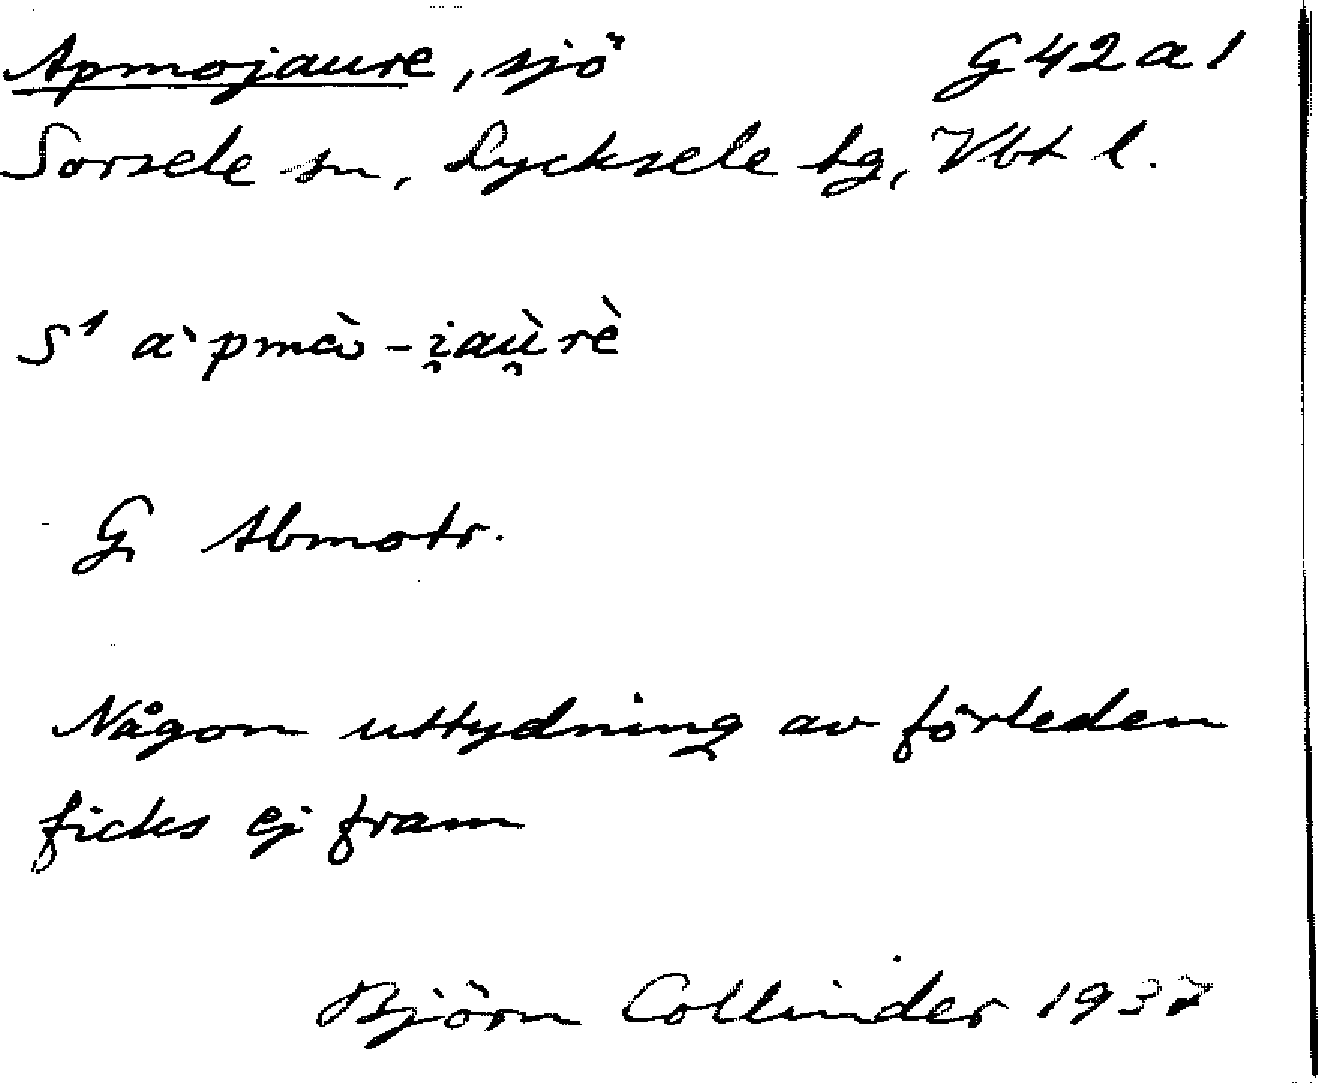 Apmojaure, sjö G42a1
Sorsele sn, Lycksele tg, Vbt l.
S¹ a`pmɷ̀-i̯aù̯rè
G Abmotr.
Någon uttydning av förleden
ficks ej fram
Björn Collinder 1937